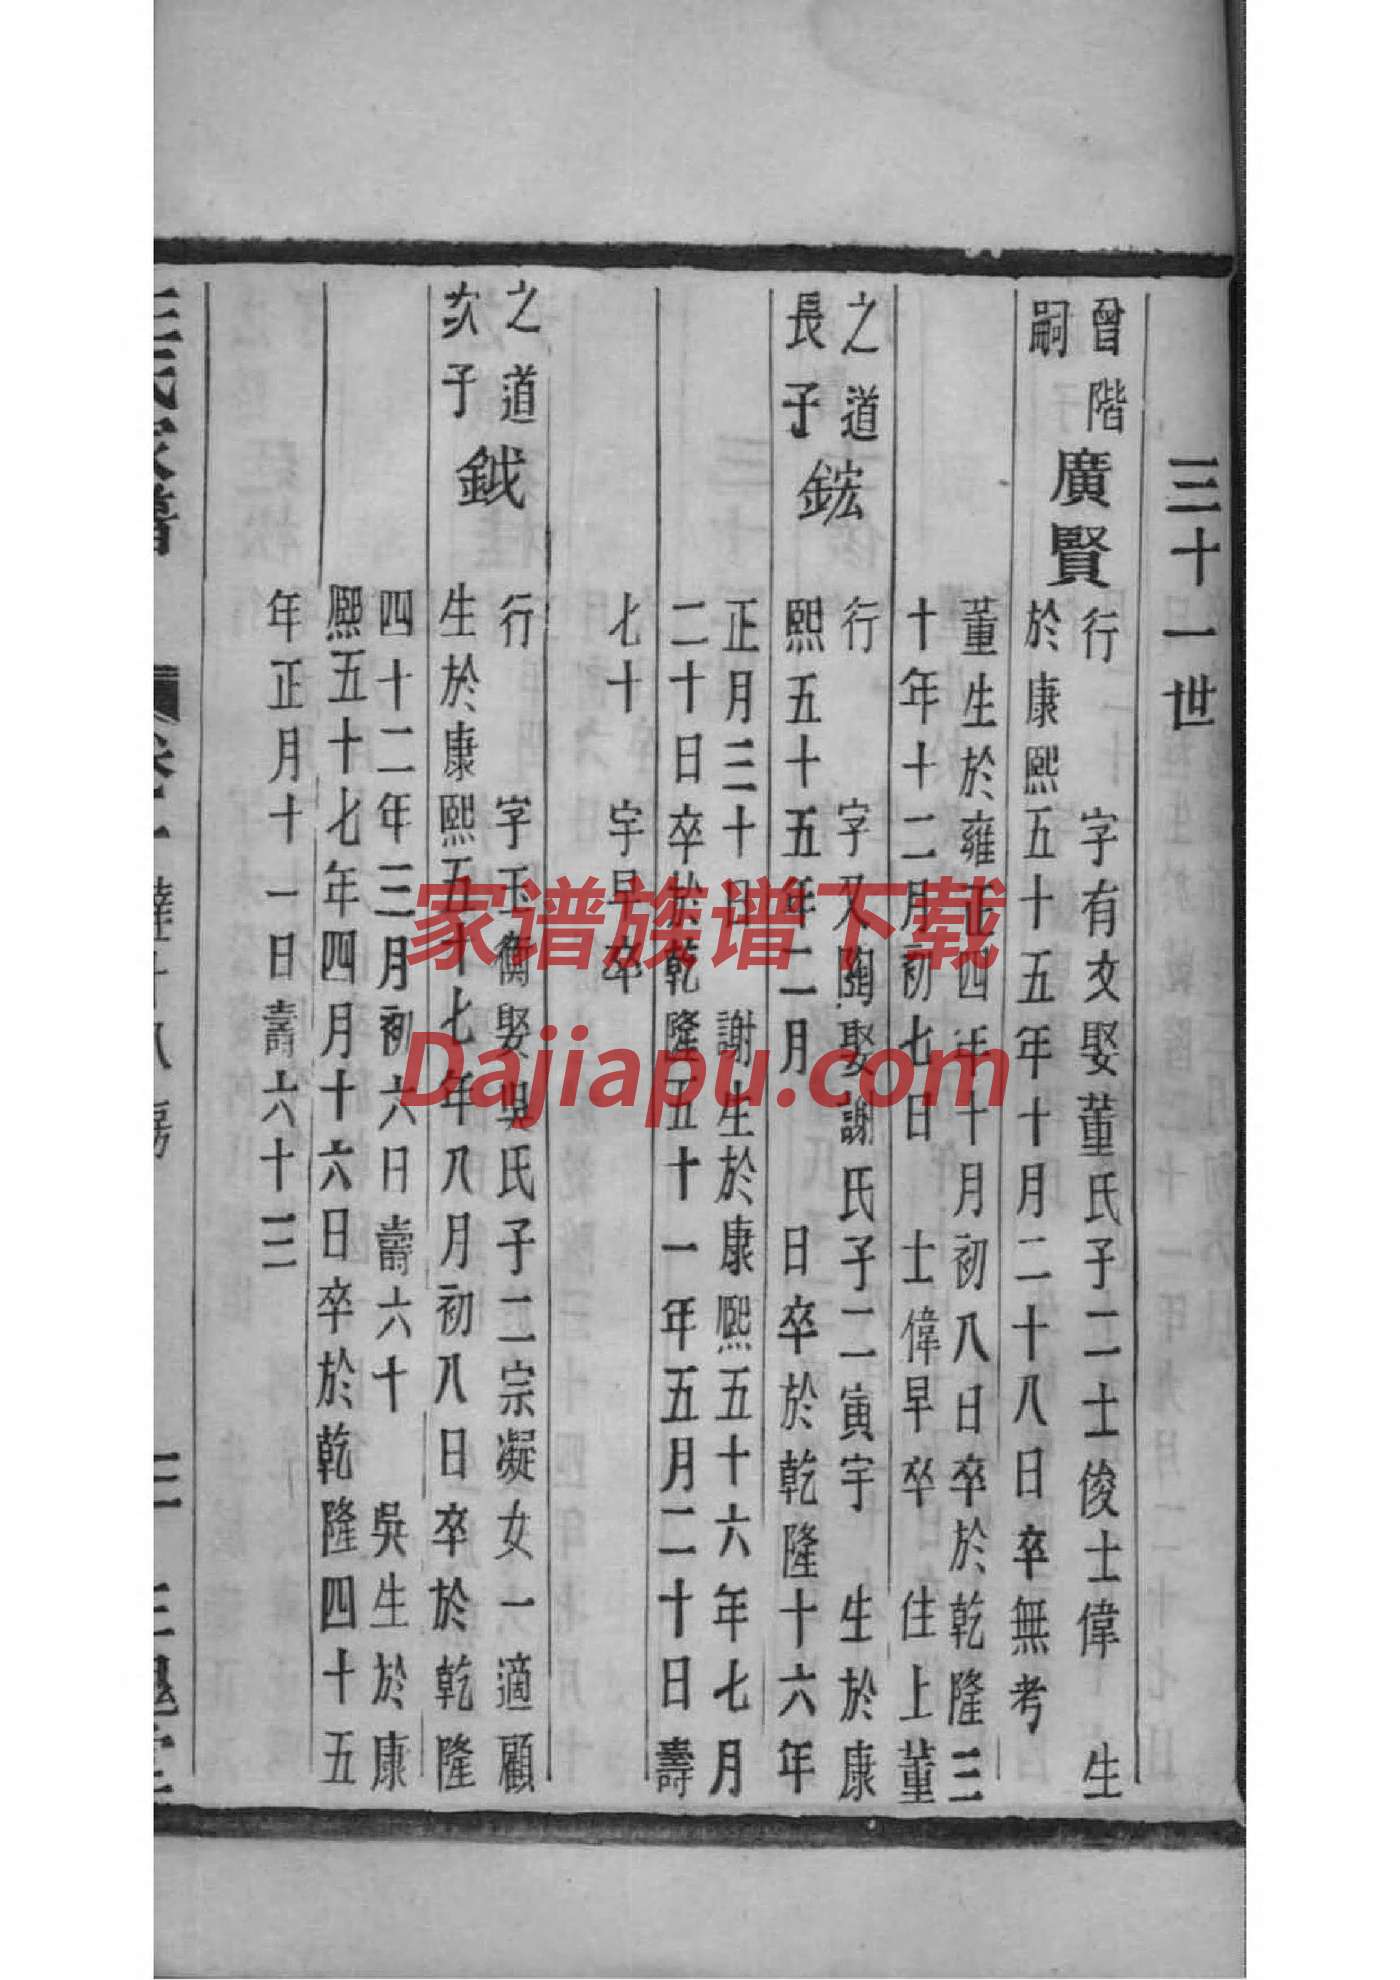 三十一世
曾階
嗣
廣賢
行 字有文娶董氏子二士俊士偉 生
於康熙五十五年十月二十八日卒無考
董生於雍正四年十月初八日卒於乾隆三
十年十二月初七日 士偉早卒 住上董
之道
長子
鋐
行 字又陶娶謝氏子二寅宇 生於康
熙五十五年二月 日卒於乾隆十六年
正月三十日 謝生於康熙五十六年七月
二十日卒於乾隆五十一年五月二十日壽
七十 宇早卒
之道
次子
鉞
行 字玉衡娶吳氏子二宗凝女一適顧
生於康熙五十七年八月初八日卒於乾隆
四十二年三月初六日壽六十 吳生於康
熙五十七年四月十六日卒於乾隆四十五
年正月十一日壽六十三
王氏家譜 卷
家谱族谱下载
Dajiapu.com